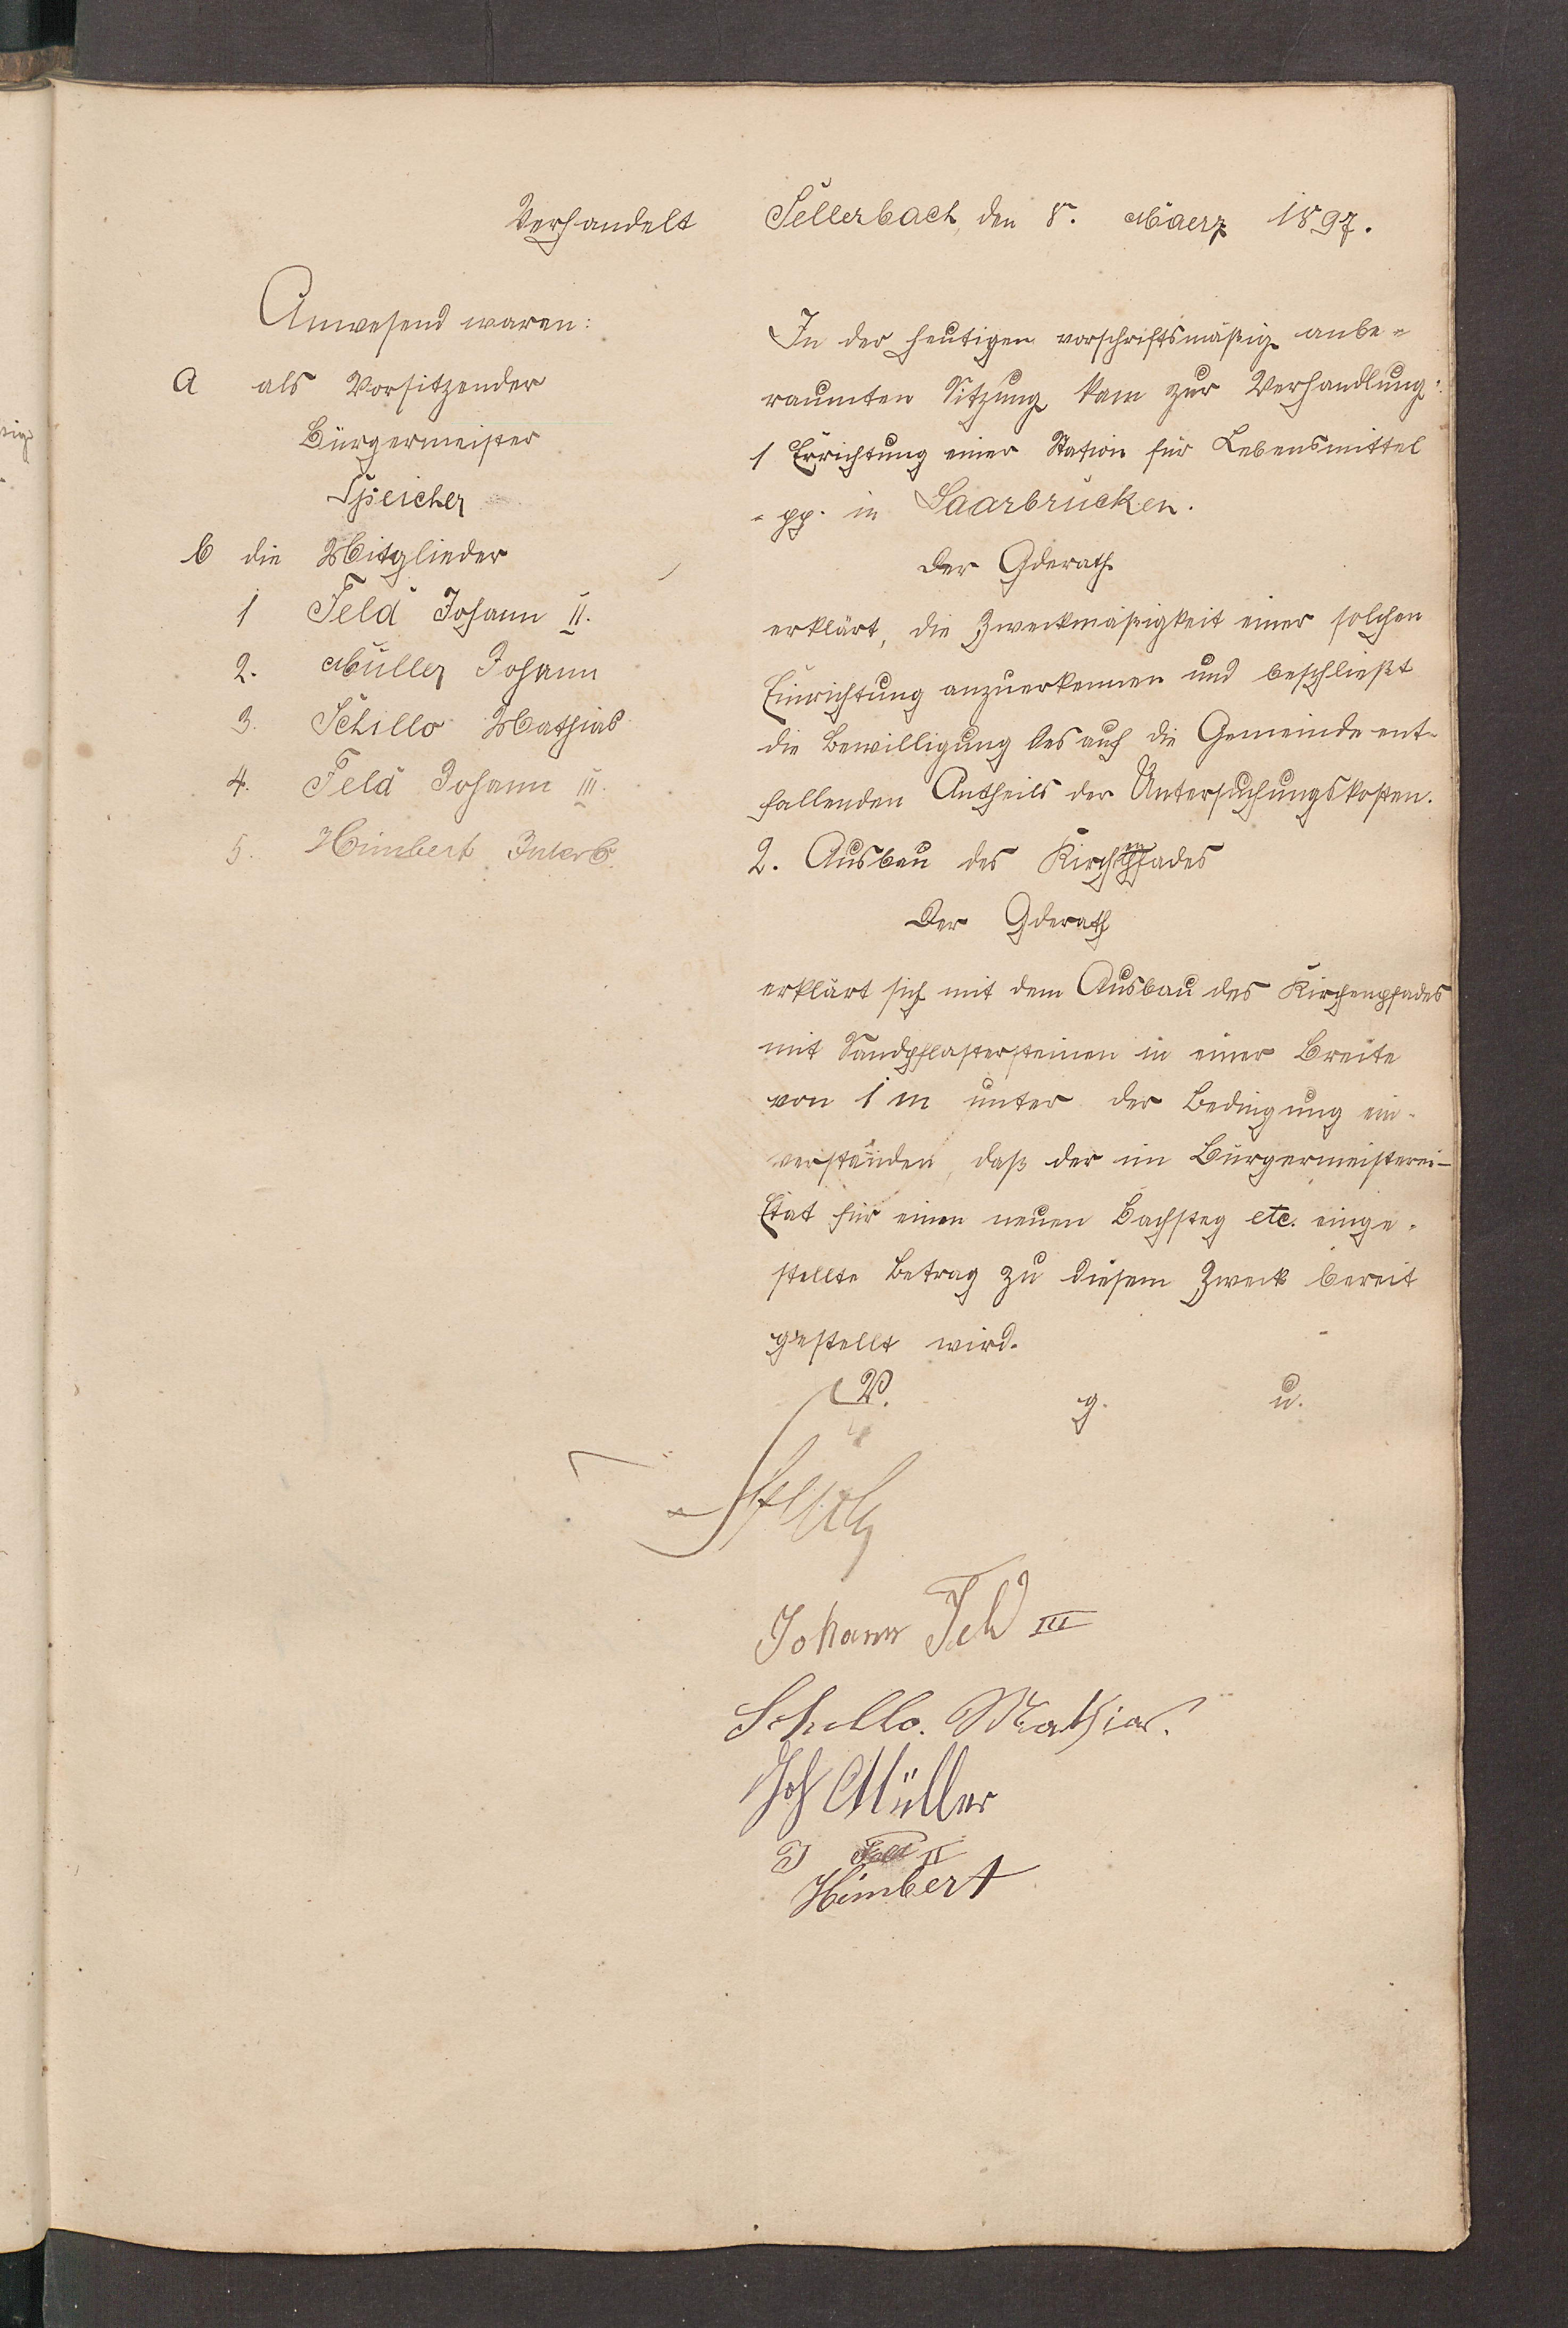 Verhandelt Sellerbach, den 8. Maerz 1897.
Anwesend waren:
a als Vorsitzender
Bürgermeister
Speicher
b die Mitglieder
1 Feld Johann II.
2. Müller Johann
3. Schillo Mathias
4. Feld Johann III.
5. Himbert Jakob
In der heutigen vorschriftsmäßig anbe-
raumten Sitzung kam zur Verhandlung:
1 Errichtung einer Station für Lebensmittel
- pp. in Saarbrücken.
Der Gderath
erklärt, die Zweckmäßigkeit einer solchen
Einrichtung anzuerkennen und beschließt
die Bewilligung des auf die Gemeinde ent-
fallenden Antheils der Untersuchungskosten.
2. Ausbau des Kirchenpfades
Der Gderath
erklärt sich mit dem Ausbau des Kirchenpfades
mit Sandpflastersteinen in einer Breite
von 1 m unter der Bedingung ein-
verstanden, daß der im Bürgermeisterei-
Etat für einen neuen Bachsteg etc. einge-
stellte Betrag zu diesem Zweck bereit
gestellt wird.
V. g. u.
Johann Feld III
Schillo. Mathias.
Joh Müller
J Feld II
Himbert